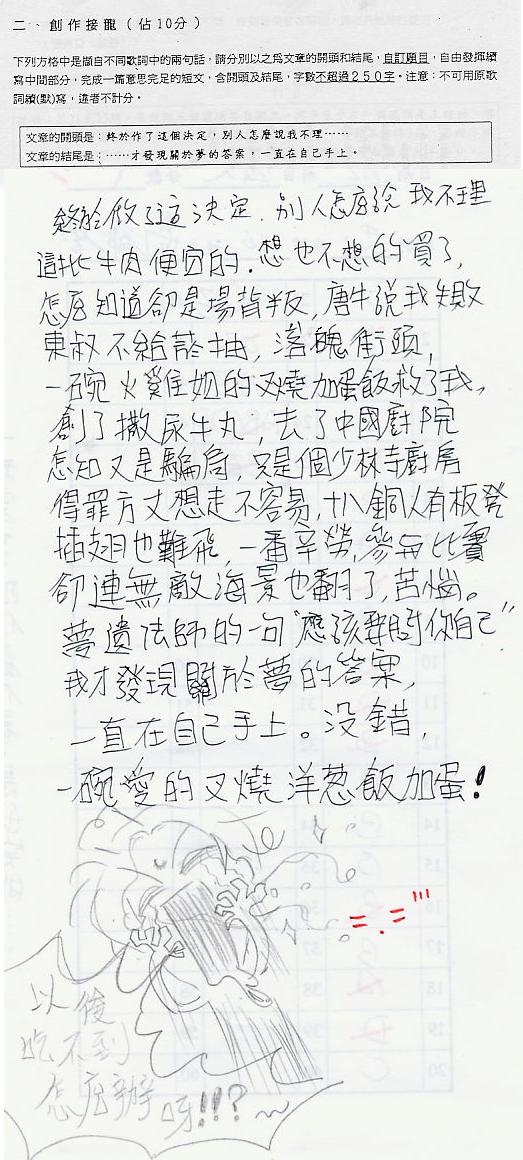 二、創作接龍（佔10分）
下列方格中是擷自不同歌詞中的兩句話，請分別以之爲文章的開頭和結尾，自訂題目，自由發揮續
寫中間部分，完成一篇意思完足的短文，含開頭及結尾，字數不超過２５０字。注意：不可用原歌
詞續(默)寫，違者不計分。
文章的開頭是：終於作了這個決定，別人怎麼說我不理……
文章的結尾是：……才發現關於夢的答案，一直在自己手上。
終於做了這決定．別人怎麼說 我不理
這批牛肉便宜的．想也不想的買了，
怎麼知道卻是場背叛，唐牛說我失敗
東叔不給菸抽，落魄街頭，
一碗火雞姐的叉燒加蛋飯救了我，
創了撒尿牛丸，去了中國廚院
怎知又是騙局，只是個少林寺廚房
得罪方丈想走不容易，十八銅人有板凳
插翅也難飛，一番辛勞，參與比賽
卻連無敵海景也翻了，苦惱。
夢遺法師的一句“應該要問你自己”
我才發現關於夢的答案，
一直在自己手上。沒錯，
一碗愛的叉燒洋葱飯加蛋！
=.="'
以後
吃不到
怎麼辦呀!!?~